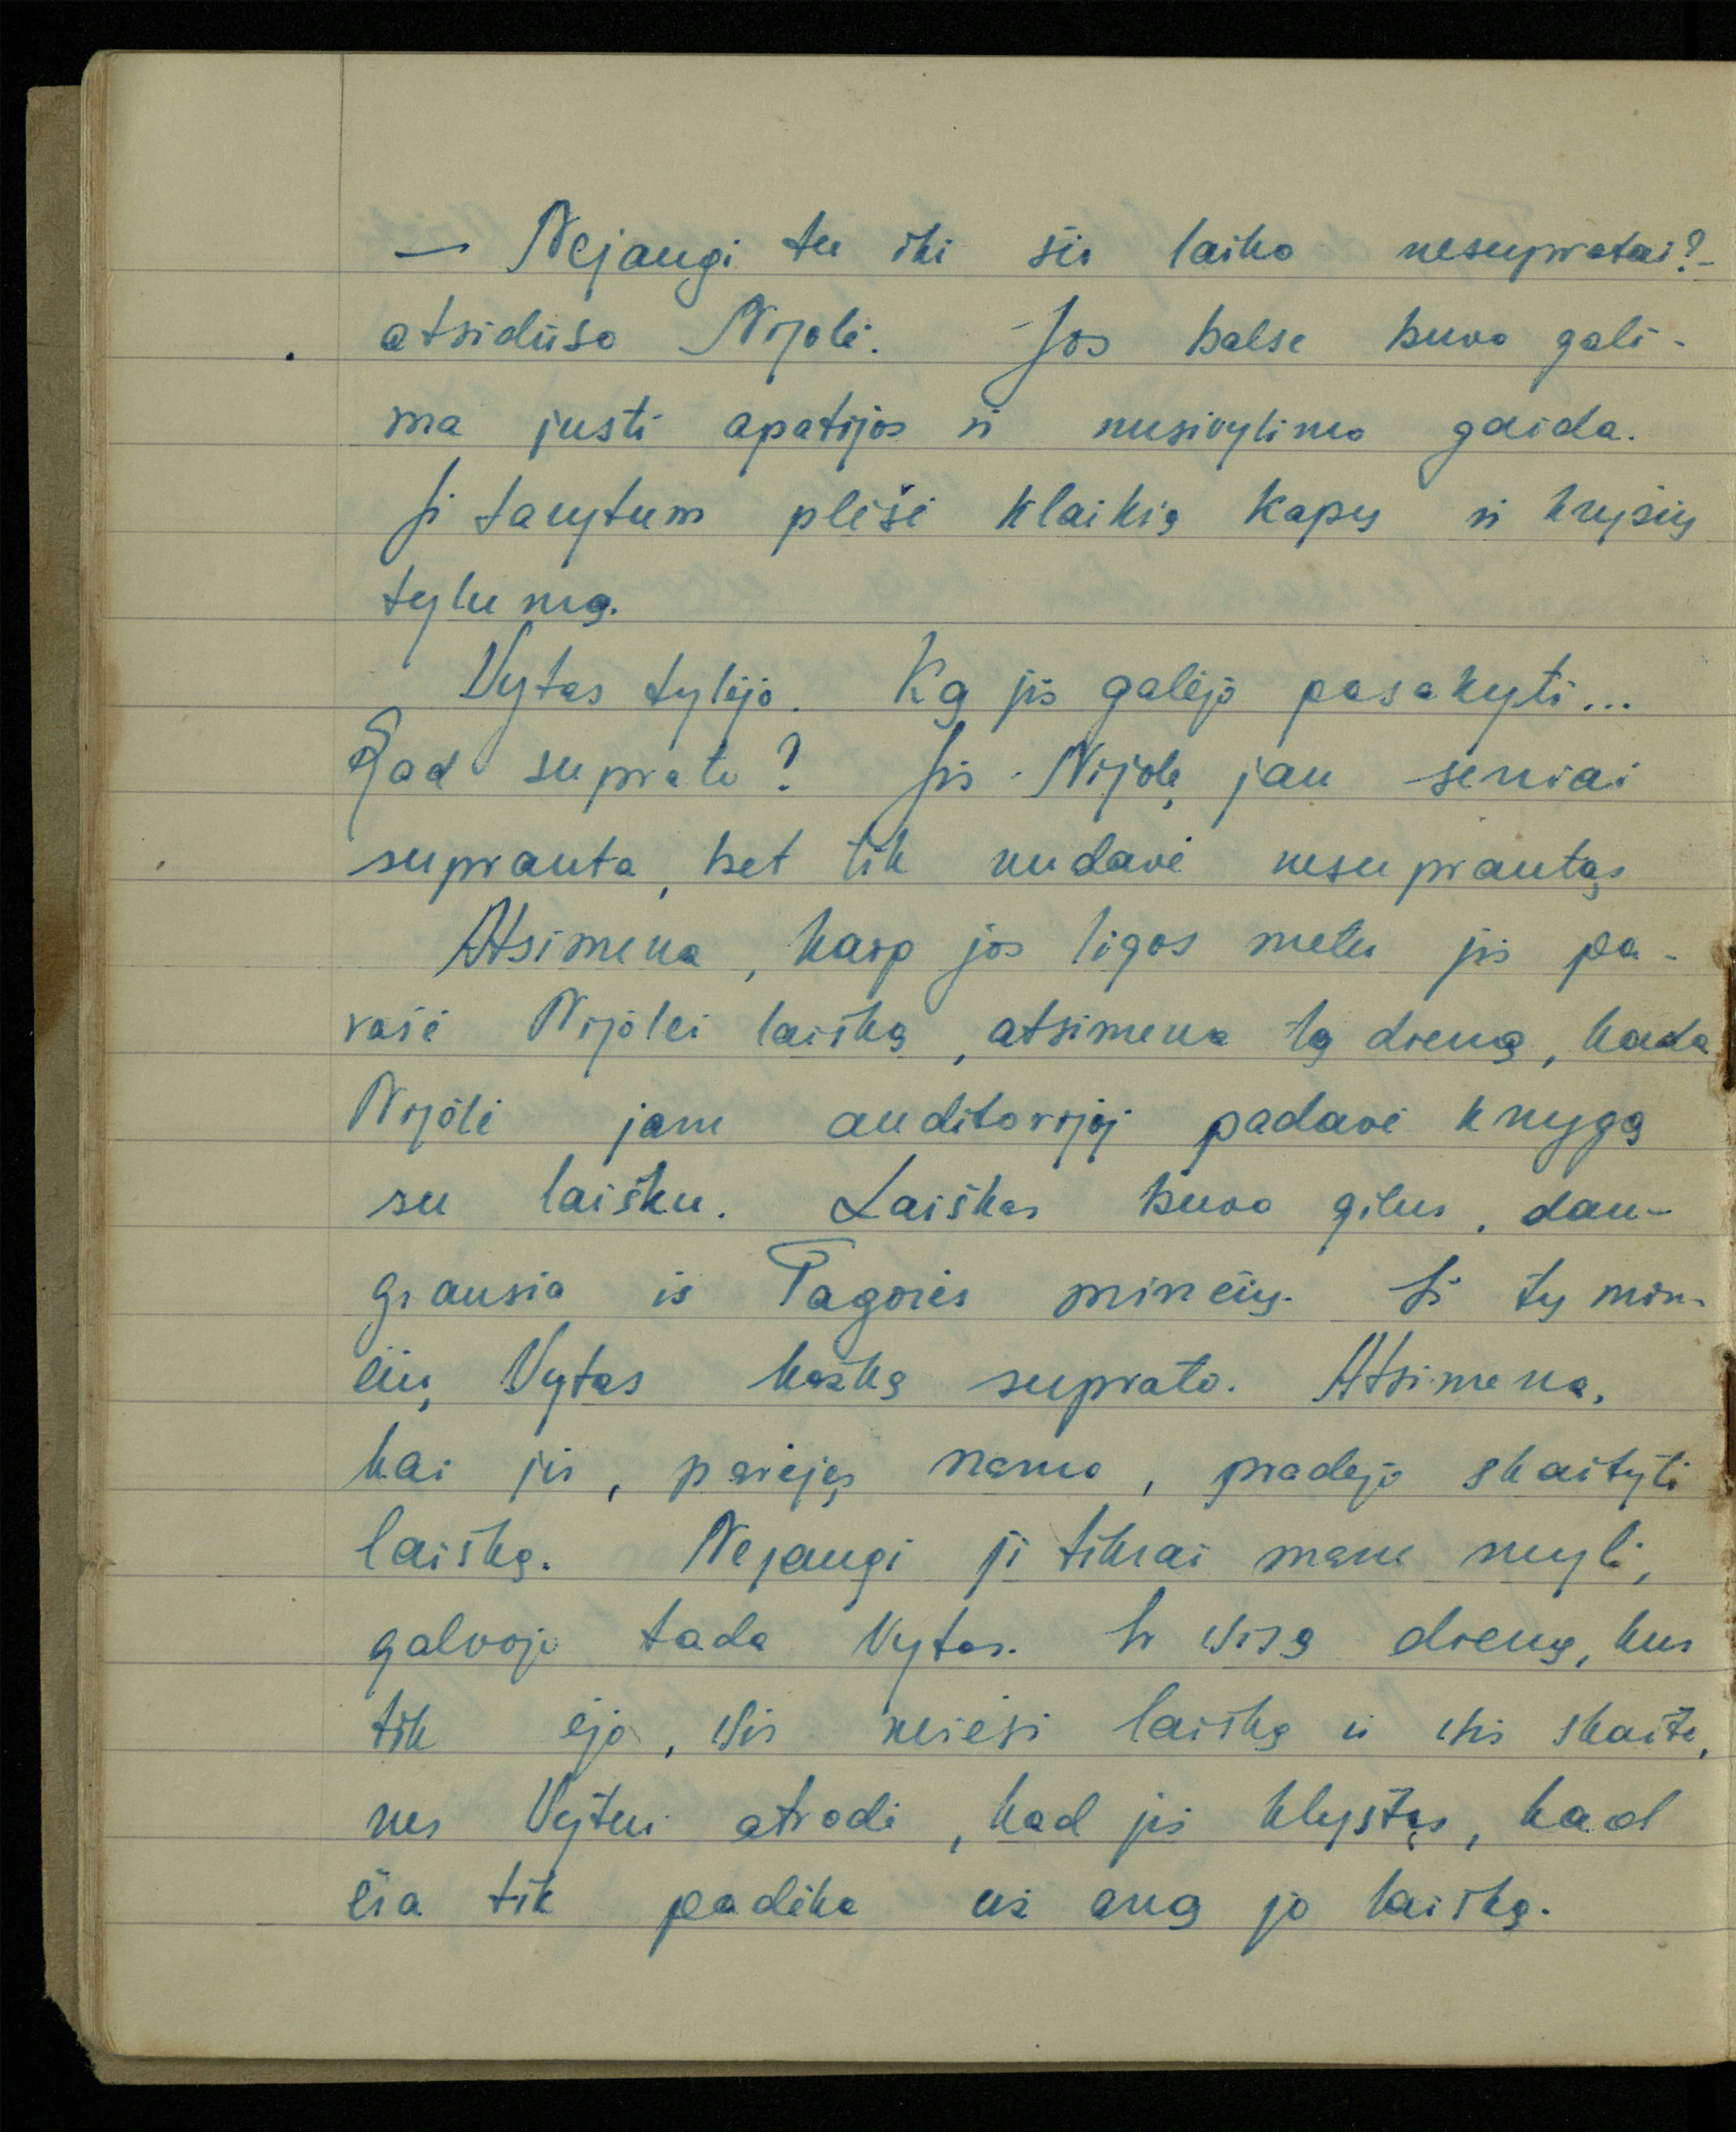 — Nejaugi tu iki šio laiko nesupratai? -
atsidūso Nijolė. Jos balse buvo gali-
ma justi apatijos ir nusivylimo gaida.
Ji tarytum plėšė klaikią kapų ir kryžių
tylumą.
Vytas tylėjo. Ką jis galėjo pasakyti...
Kad suprato? Jis Nijolę jau seniai
supranta, bet tik nudavė nesuprantąs
Atsimena, kaip jos ligos metu jis pa-
rašė Nijolei laišką, atsimena tą dieną, kada
Nijolė jam auditorijoj padavė knygą
su laišku. Laiškas buvo gilus, dau-
giausia iš Tagorės minčių. Iš tų min-
čių Vytas kažką suprato. Atsimena,
kai jis, parėjęs namo, pradėjo skaityti
laišką. Nejaugi ji tikrai mane myli,
galvojo tada Vytas. Ir visą dieną, kur
tik ėjo, vis nešėsi laišką ir vis skaitė,
nes Vytui atrodė, kad jis klystąs, kad
čia tik padėka už aną jo laišką.